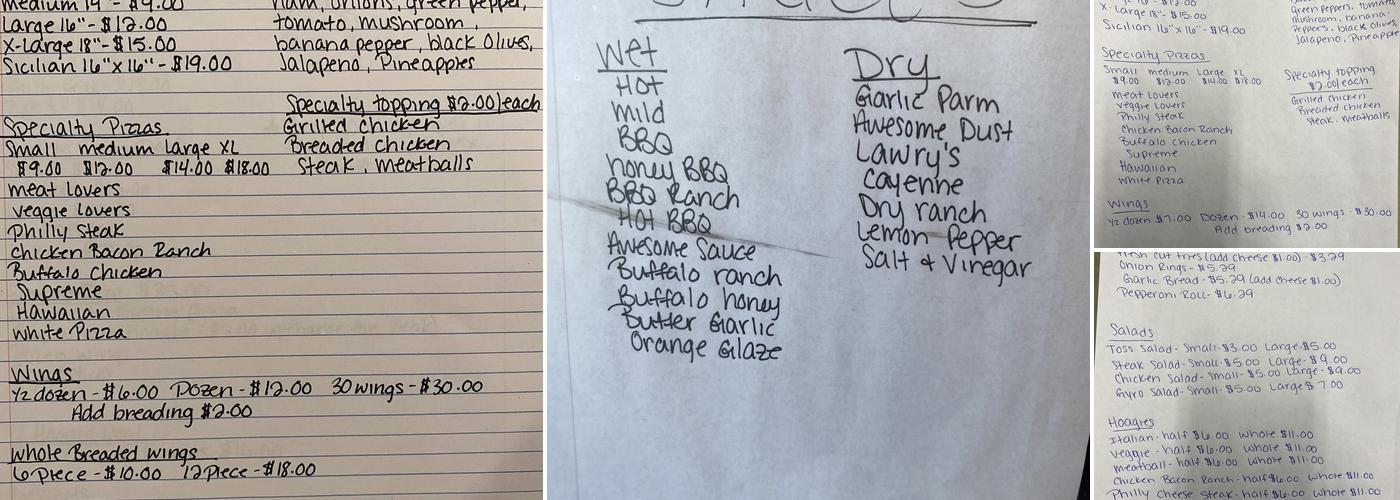 Medium 14" - $9.00
Large 16" - $12.00
X-Large 18" - $15.00
Sicilian 16"x16" - $19.00
ham, onions, green pepper,
tomato, mushroom,
banana pepper, black Olives,
Jalapeno, Pineapples
Specialty topping $2.00/each
Grilled chicken
Breaded chicken
Steak, meatballs
Specialty Pizzas
Small medium Large XL
$9.00 $12.00 $14.00 $18.00
meat lovers
veggie lovers
Philly Steak
Chicken Bacon Ranch
Buffalo Chicken
Supreme
Hawaiian
White Pizza
Wings
1/2 dozen - $6.00 Dozen - $12.00 30 wings - $30.00
Add breading $2.00
Whole Breaded wings
6 Piece - $10.00 12 Piece - $18.00
Wet
Hot
mild
BBQ
honey BBQ
BBQ Ranch
Hot BBQ
Awesome Sauce
Buffalo ranch
Buffalo honey
Butter Garlic
Orange Glaze
Dry
Garlic Parm
Awesome Dust
Lawry's
Cayenne
Dry ranch
Lemon Pepper
Salt & Vinegar
X-Large 18" - $15.00
Sicilian 16"x16" - $19.00
green peppers, tomato
mushroom, banana
Peppers, black Olives
Jalapeno, Pineapple
Specialty Pizzas
Small medium Large XL
$9.00 $12.00 $14.00 $18.00
meat Lovers
veggie Lovers
Philly Steak
Chicken Bacon Ranch
Buffalo Chicken
Supreme
Hawaiian
White Pizza
Specialty topping
$2.00/each
Grilled Chicken
Breaded chicken
Steak, meatballs
Wings
1/2 dozen $7.00 Dozen - $14.00 30 wings - $30.00
Add breading $2.00
Fresh cut fries (add cheese $1.00) - $3.29
Onion Rings - $5.29
Garlic Bread - $5.29 (add cheese $1.00)
Pepperoni Roll - $6.29
Salads
Toss Salad - Small - $3.00 Large - $5.00
Steak Salad - Small - $5.00 Large - $9.00
Chicken Salad - Small - $5.00 Large - $9.00
Gyro Salad - Small - $5.00 Large $7.00
Hoagies
Italian - half $6.00 whole $11.00
veggie - half $6.00 whole $11.00
meatball - half $6.00 whole $11.00
Chicken Bacon Ranch - half $6.00 whole $11.00
Philly Cheese Steak - half $6.00 whole $11.00